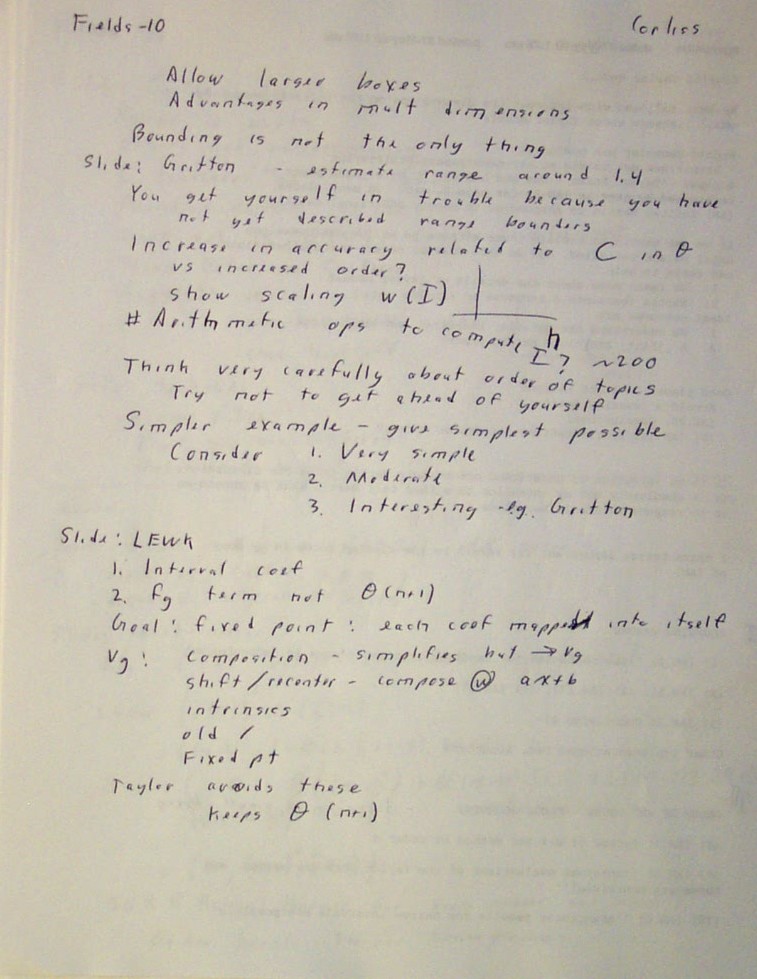 Fields-10 Corliss
Allow larger boxes
Advantages in mult dimensions
Bounding is not the only thing
Slide: Gritton - estimate range around 1.4
You get yourself in trouble because you have
not yet described range bounders
Increase in accuracy related to C in θ
vs increased order?
show scaling w(I)
h
# Arithmetic ops to compute I? ~200
Think very carefully about order of topics
Try not to get ahead of yourself
Simpler example - give simplest possible
Consider 1. Very simple
2. Moderate
3. Interesting -eg. Gritton
Slide: LEWK
1. Interval coef
2. fg term not θ(n+1)
Goal: fixed point: each coef mapped into itself
Vg: composition - simplifies but → Vg
shift/recenter - compose @ ax+b
intrinsics
old /
Fixed pt
Taylor avoids these
keeps θ(n+1)